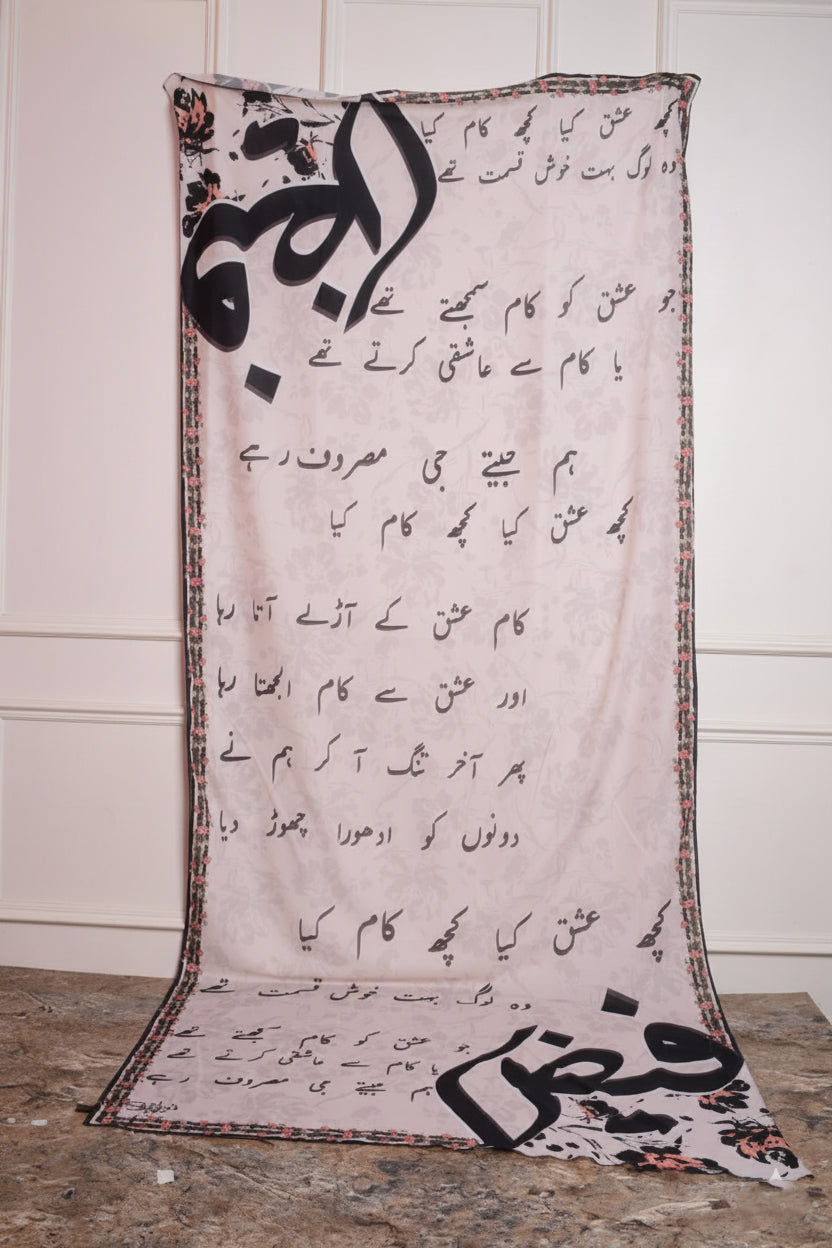 کچھ عشق کیا کچھ کام کیا
وہ لوگ بہت خوش قسمت تھے
جو عشق کو کام سمجھتے تھے
یا کام سے عاشقی کرتے تھے
ہم جیتے جی مصروف رہے
کچھ عشق کیا کچھ کام کیا
کام عشق کے آڑے آتا رہا
اور عشق سے کام الجھتا رہا
پھر آخر تنگ آ کر ہم نے
دونوں کو ادھورا چھوڑ دیا
کچھ عشق کیا کچھ کام کیا
وہ لوگ بہت خوش قسمت تھے
جو عشق کو کام سمجھتے تھے
یا کام سے عاشقی کرتے تھے
ہم جیتے جی مصروف رہے
فیض